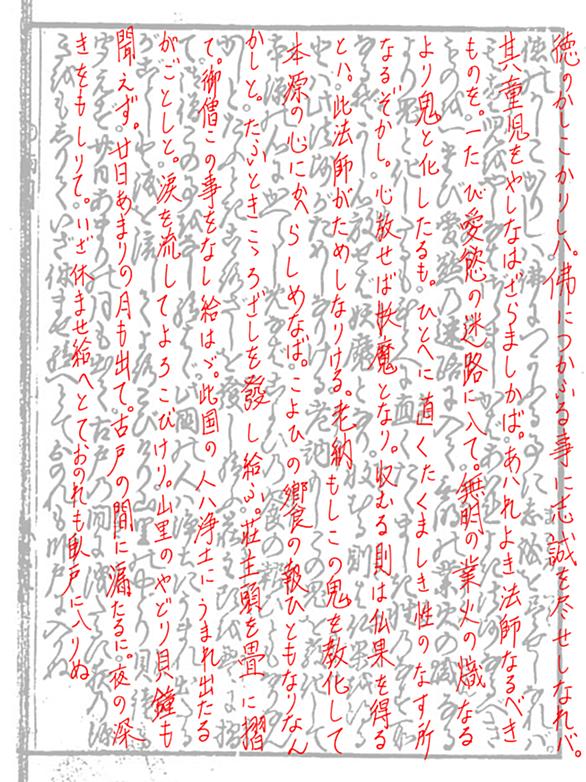 徳のかしこかりしハ。佛につかふる事に志誠を尽せしなれバ。
其童児をやしなはざらましかば。あハれよき法師なるべき
ものを。一たび愛慾の迷路に入て。無明の業火の熾なる
より鬼と化したるも。ひとへに直くたくましき性のなす所
なるぞかし。心放せば妖魔となり。収むる則は仏果を得る
とハ。此法師がためしなりける。老衲もしこの鬼を教化して
本源の心にかへらしめなば。こよひの饗食の報ひともなりなん
かしと。たふときこゝろざしを發し給ふ。荘主頭を畳に摺
て。御僧この事をなし給はゞ。此国の人ハ浄土にうまれ出たる
がごとしと。涙を流してよろこびけり。山里のやどり貝鐘も
聞えず。廿日あまりの月も出て。古戸の間に漏たるに。夜の深
きをもしりて。いざ休ませ給へとておのれも臥戸に入りぬ